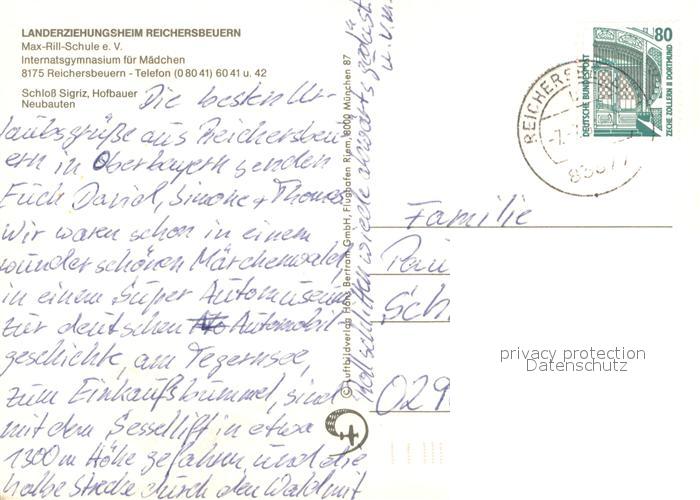 LANDERZIEHUNGSHEIM REICHERSBEUERN
Max-Rill-Schule e. V.
Internatsgymnasium für Mädchen
8175 Reichersbeuern - Telefon (0 80 41) 60 41 u. 42
Schloß Sigriz, Hofbauer
Neubauten
Die besten Ur-
laubsgrüße aus Reichersbeu-
ern in Oberbayern senden
Euch David, Simone + Thomas
Wir waren schon in einem
wunderschönen Märchenwald,
in einem Super Automuseum
zur deutschen Automobil-
geschichte, am Tegernsee,
zum Einkaufsbummel, sind
mit dem Sessellift in etwa
1300 m Höhe gefahren und die
halbe Strecke durch den Wald mit
schlitten wieder abwärts gedüst
u.v.m.
© Luftbildverlag Hans Bertram GmbH, Flughafen Riem, 8000 München 87
80
DEUTSCHE BUNDESPOST
ZECHE ZOLLERN II DORTMUND
REICHERS
83677
Familie
Sch
029
privacy protection
Datenschutz